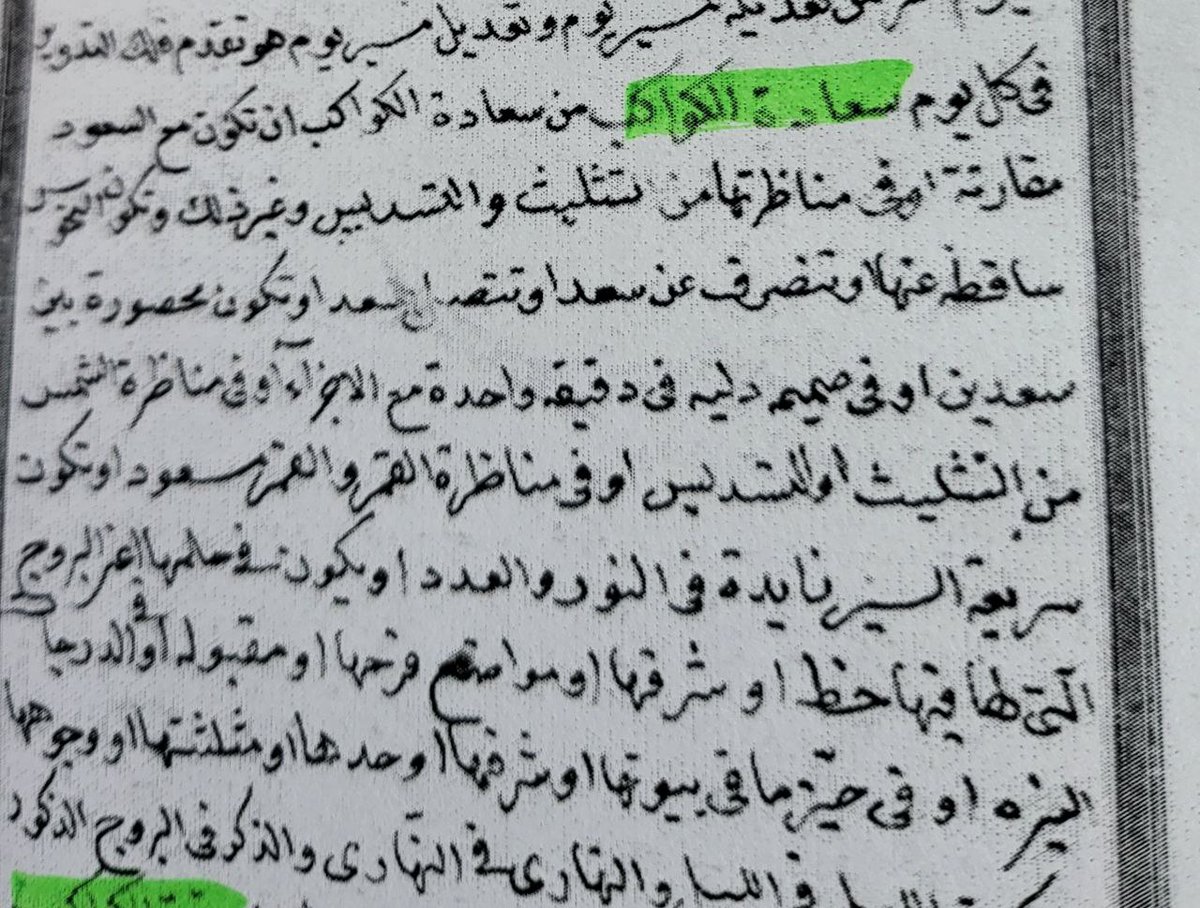 تعديله مسير يوم وتعديل مسير يوم هو تقدم فلك التدوير
فى كل يوم سعادة الكواكب من سعادة الكواكب ان تكون مع السعود
مقارنة او فى مناظرتها من تثليث والتسديس وغير ذلك وتكون النحوس
ساقطة عنها او تنصرف عن سعد او تتصل بسعد او تكون محصورة بين
سعدين او فى صميم دليه فى دقيقه واحدة مع الاجزآء او فى مناظرة الشمس
من التثليث او التسديس او فى مناظرة القمر والقمر مسعود او تكون
سريعة السير زايدة فى النور والعدد او يكون فى حلبها اعنى البروج
التى لها فيها حظ او شرفها او مواضع فرحها او مقبوله او فى الدرجات
النيره او فى حيزها فى بيوتها او شرفها او حدها او مثلثتها او وجوهها
والنهارى فى النهارى والذكر فى البروج الذكور